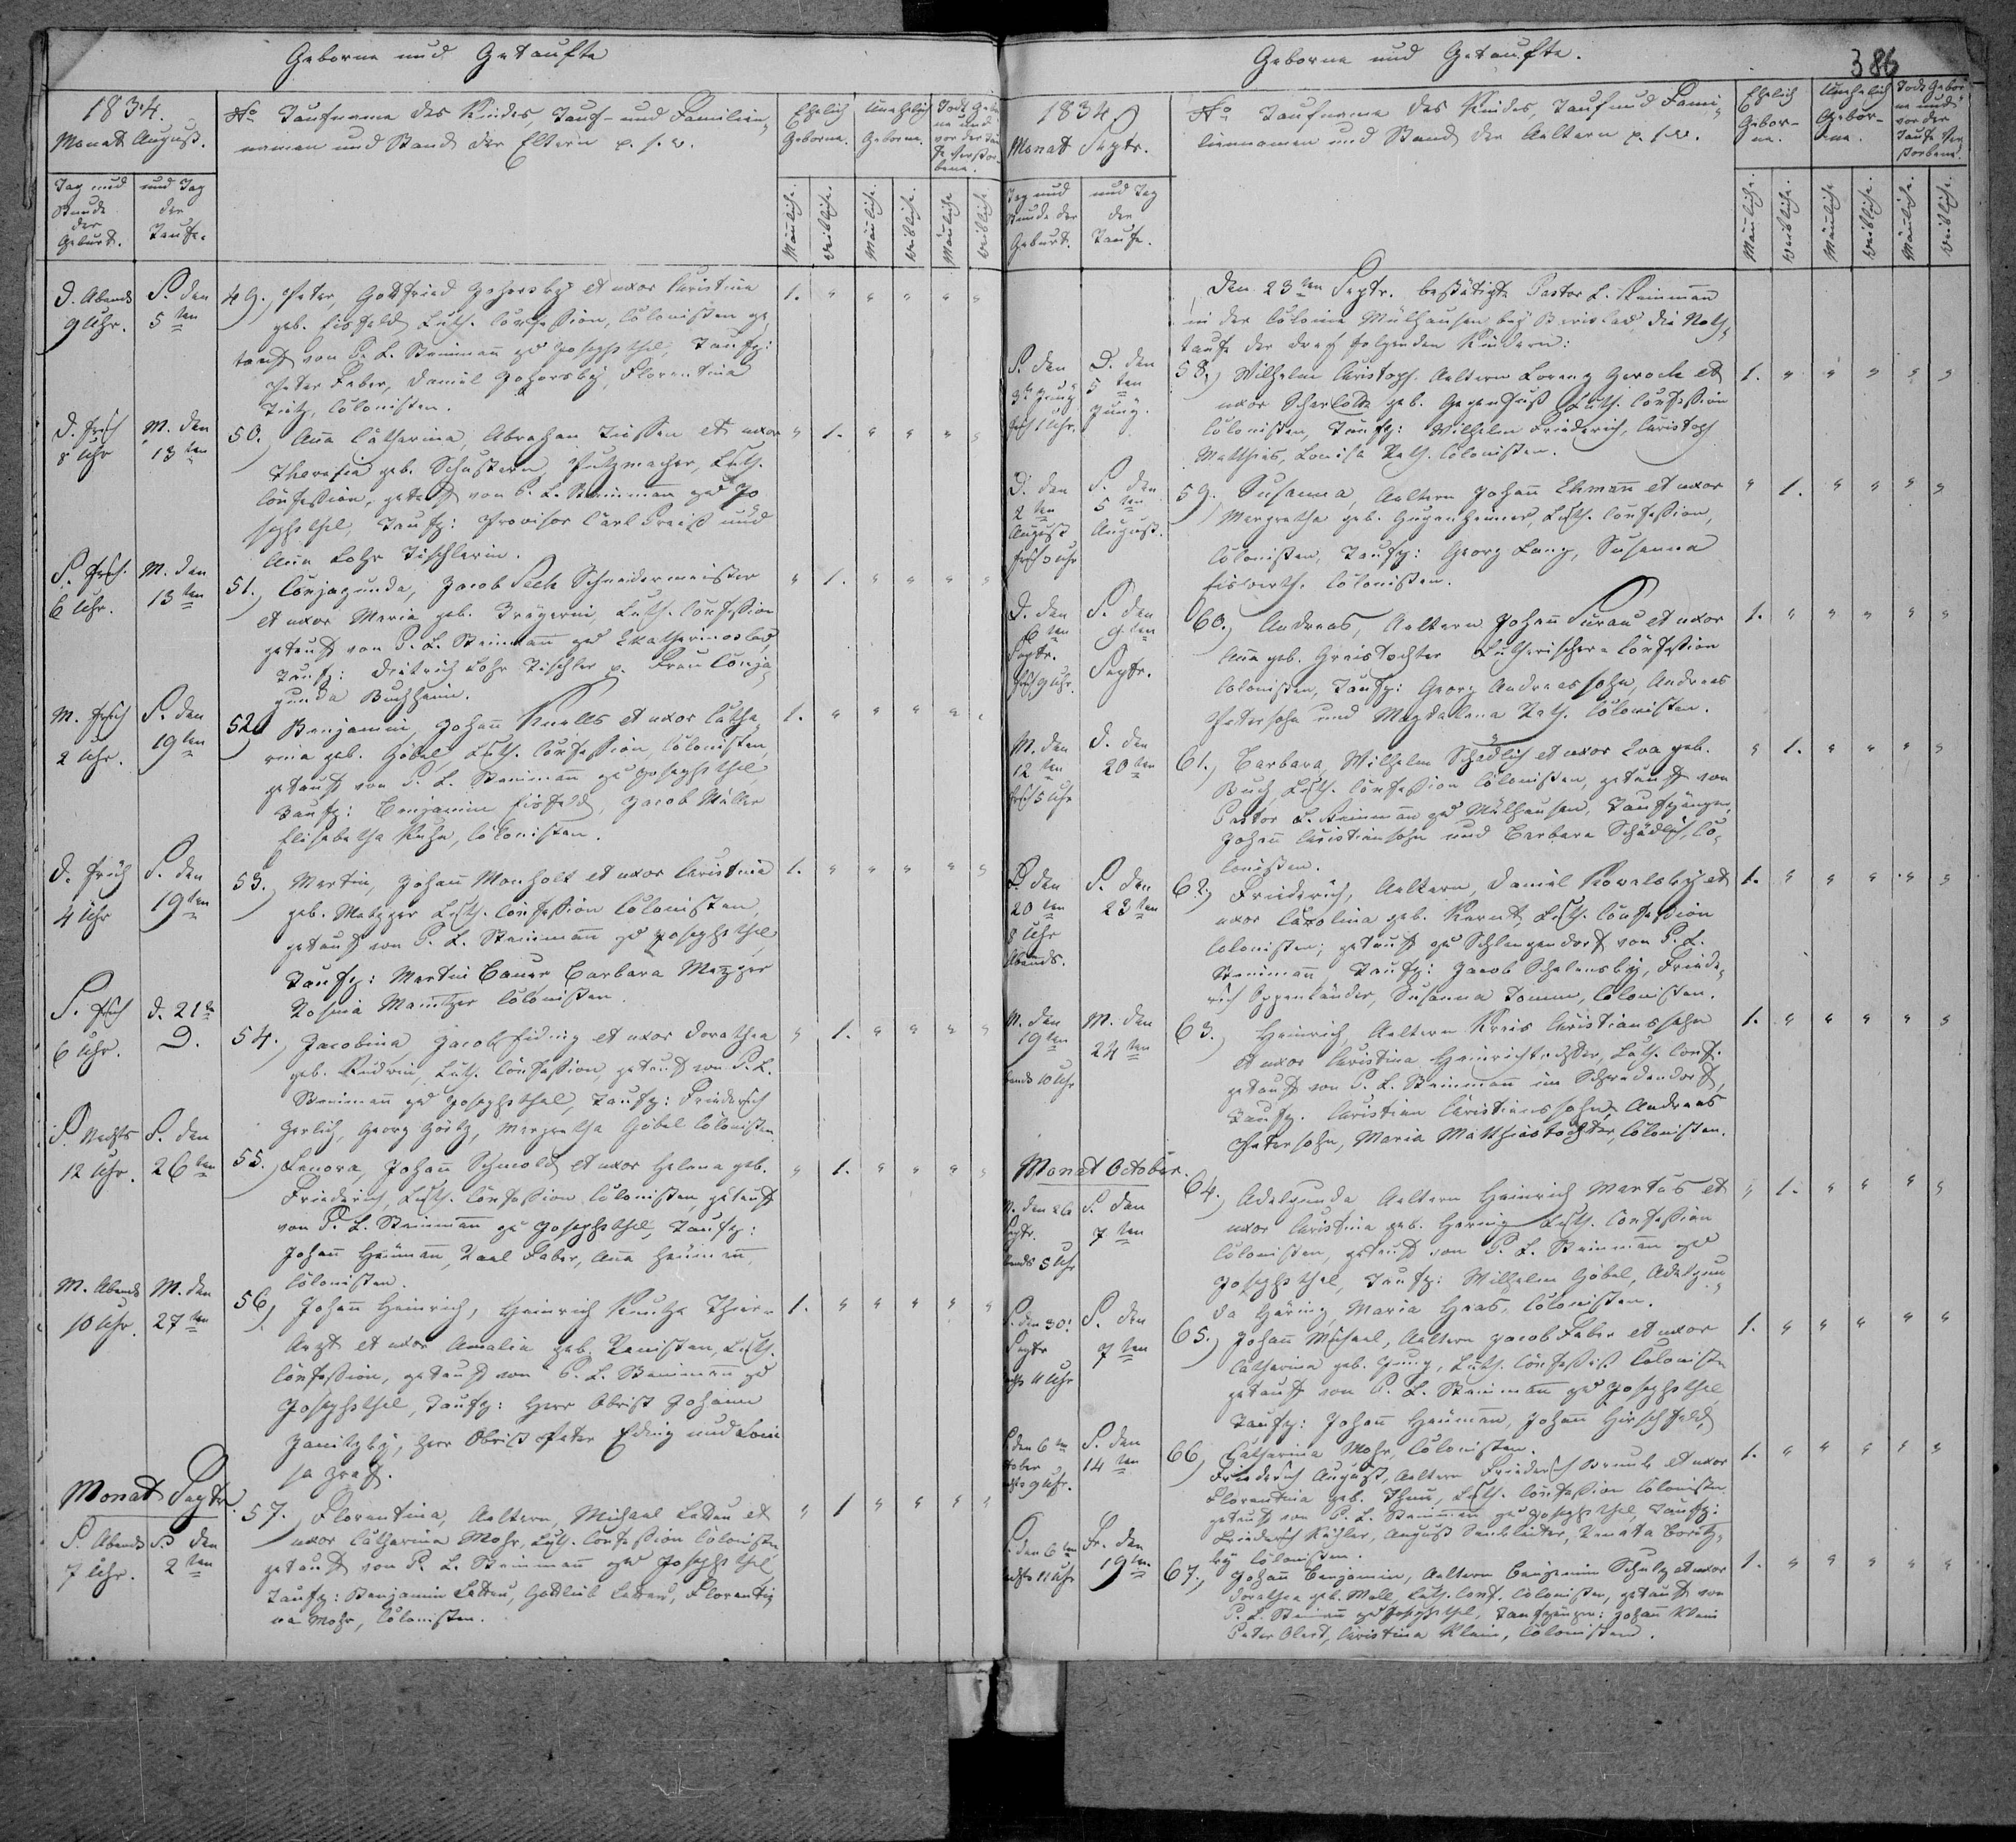 Geborne und Getaufte
1834.
Monat August.
Tag und
Stunde
der
Geburt.
und Tag
der
Taufe.
No Taufname des Kindes, Tauf- und Familien-
namen und Stand der Eltern p. s. w.
Ehelich
Geborne.
Unehelich
Geborne.
Todt Gebor
ne und
vor der Tau
fe Verstor-
bene.
Mänliche.
Weibliche.
Mänliche.
Weibliche.
Mänliche
Weibliche
D. Abends
9 Uhr.
S. den
5ten
49., Peter, Gottfried et uxor Christina
geb. Eisfeld Luth. Confession, Colonisten ge
tauft von P. L. Steinmañ zu Josephsthal, Taufz:
Peter Faber, Daniel Florentina
Colonisten.
1. " " " " "
D. früh
8 Uhr
M. den
13ten
50., Aña Catharina, Abraham et uxor
Theresia geb. Schustern, Putzmacher, Luth.
Confession, getauft von P. L. Steinmañ zu Jo
sephsthal, Taufz: Provisor Carl Preiß und
Aña Lohr Tischlerin.
" 1. " " " "
S. früh.
6 Uhr.
M. den
13ten
51., Conjagunda, Jacob Schneidermeister
et uxor Maria geb. Luth. Confession
getauft von P. L. Steinmañ zu Ekatherinoslaw,
Taufz: Dietrich Lohr Tischler p. Frau Conja
gunda Buchheim.
" 1. " " " "
M. früh
2 Uhr.
S. den
19ten
52., Benjamin, Johañ Knolls et uxor Catha
rina geb. Göbel, Luth. Confession, Colonisten,
getauft von P. L. Steinmañ zu Josephsthal
Taufz: Benjamin Eisfeld, Jacob Müller
Elisabetha Kuhn, Colonisten.
1. " " " " "
D. früh
4 Uhr
S. den
19ten
53., Martin, Johañ Monholt et uxor Christina
geb. Metzger Luth. Confession Colonisten,
getauft von P. L. Steinmañ zu Josephsthal,
Taufz: Martin Bauer Barbara Mezger
Rosina Colonisten.
1. " " " " "
S. früh
6 Uhr.
d. 21te
D.
54., Jacobina, Jacob et uxor Dorathea
geb. Luth. Confession, getauft von P. L.
Steinmañ zu Josephsthal, Taufz: Friedrich
Gerlich, Georg Margretha Göbel Colonisten
" 1. " " " "
S. Nachts
12 Uhr.
S. den
26ten
55., Lenora, Johañ et uxor Helena geb.
Friederich, Luth. Confession, Colonisten, getauft
von P. L. Steinmañ zu Josephsthal, Taufz:
Johañ Heinmañ, Karl Faber, Aña Heinmañ,
Colonisten.
" 1. " " " "
M. Abends
10 Uhr.
M. den
27ten
56., Johañ Heinrich, Heinrich Thier-
Arzt et uxor Amalia geb. Luth.
Confession, getauft von P. L. Steinmañ zu
Josephsthal, Taufz: Herr Obrist Johann
Herr Obrist Peter und Loui
sa
1. " " " " "
Monat Septr.
S. Abends
7 Uhr.
S. den
2ten
57., Florentina, Aeltern, Michael Lettau et
uxor Catharina Mohr, Luth. Confession Colonisten
getauft von P. L. Steinmañ zu Josephsthal,
Taufz: Benjamin Lettau, Gottlieb Lettau, Florenti
na Mohr, Colonisten.
" 1 " " " "
Geborne und Getaufte.
386
1834
Monat Septr.
Tag und
Stunde der
Geburt.
und Tag
der
Taufe.
No Taufname des Kindes, Tauf und Fami-
liennamen und Stand der Aeltern p. s. w.
Ehelich
Gebor-
ne.
Unehelich
Gebor-
ne.
Todt Gebor
ne und
vor der
Taufe Ver
storbene.
Mänliche.
Weibliche.
Mänliche
Weibliche.
Mänliche.
Weibliche.
Den 23ten Septr. bestätigte Pastor L. Steinmañ
in der Colonie Mülhausen bey Berislaw die Noth-
taufe der drey folgenden Kindern:
S. den
früh 1 Uhr.
D. den
5ten
Juny.
58., Wilhelm Christoph. Aeltern Lorenz Gerock et
uxor Scharlotte geb. Luth. Confession
Colonisten, Taufz: Wilhelm Friederich, Christoph
Matthias, Louisa Rath. Colonisten.
1. " " " " "
D. den
2ten
August
früh 3 Uhr
S. den
5ten
August.
59., Susanna, Aeltern Johañ Ehmañ et uxor
Margretha geb. Gugenheimer, Luth. Confession,
Colonisten, Taufz: Georg Lang, Susanna
Colonisten.
" 1. " " " "
D. den
6ten
Septr.
früh 9 Uhr.
S. den
9ten
Septr.
60., Andreas, Aeltern Johañ et uxor
Aña geb. Greistochter Lutherischer Confession
Colonisten, Taufz: Georg Andreassohn, Andreas
Petersohn und Magdalena Rath. Colonisten.
1. " " " " "
M. den
12ten
früh 5 Uhr
d. den
20ten
61., Barbara, Wilhelm Schädlich et uxor Eva geb.
Buch, Luth. Confession Colonisten, getauft von
Pastor L. Steinmañ zu Mülhausen, Taufzeugen,
Johañ Christiansohn und Barbara Schädlich, Co-
lonisten.
" 1. " " " "
D. den
20ten
8 Uhr
Abends.
S. den
23ten
62., Friederich, Aeltern, Daniel Kowalsky et
uxor Carolina geb. Luth. Confession
Colonisten, getauft zu Schlangendorf von P. L.
Steinmañ Taufz: Jacob Friede-
rich Oppenländer, Susanna Colonisten.
1. " " " " "
M. den
19ten
bends 10 Uhr
M. den
24ten
63., Heinrich, Aeltern Kreis Christianssohn
et uxor Christina Heinrichtochter, Luth. Conf.
getauft von P. L. Steinmañ im Schwedendorf,
Taufz. Christian Christianssohn, Andreas
Petersohn, Maria Matthiastochter, Colonisten.
1. " " " " "
Monat October.
den 26
Septr.
bends 5 Uhr
S. den
7ten
64., Adelgunda Aeltern Heinrich Martas et
uxor Christina geb. Hering Luth. Confession
Colonisten, getauft von P. L. Steinmañ zu
Josephsthal, Taufz: Wilhelm Göbel, Adelgun
da Häring, Maria Haas, Colonisten.
" 1. " " " "
S. den 30t
Septr
11 Uhr
S. den
7ten
65., Johañ Michael, Aeltern Jacob Faber et uxor
Catharina geb. Luth. Confession Colonisten
getauft von P. L. Steinmañ zu Josephsthal,
Taufz: Johañ Heinmañ, Johañ Hirschfeld,
Catharina Mohr, Colonisten.
1. " " " " "
den 6ten
tober
9 Uhr.
S. den
14ten
66., Friederich August, Aeltern Friederich et uxor
Florentina geb. Luth. Confession Colonisten
getauft von P. L. Steinmañ zu Josephsthal, Taufz:
Friederich August Renata
Colonisten.
1. " " " " "
den 6ten
11 Uhr
Fr. den
19ten
67., Johañ Benjamin, Aeltern Benjamin Schulz et uxor
Dorathea geb. Moll, Luth. Conf. Colonisten, getauft von
P. L. Steinmañ zu Josephsthal, Taufzeugen: Johañ Klein
Peter Christina Klein, Colonisten.
1. " " " " "